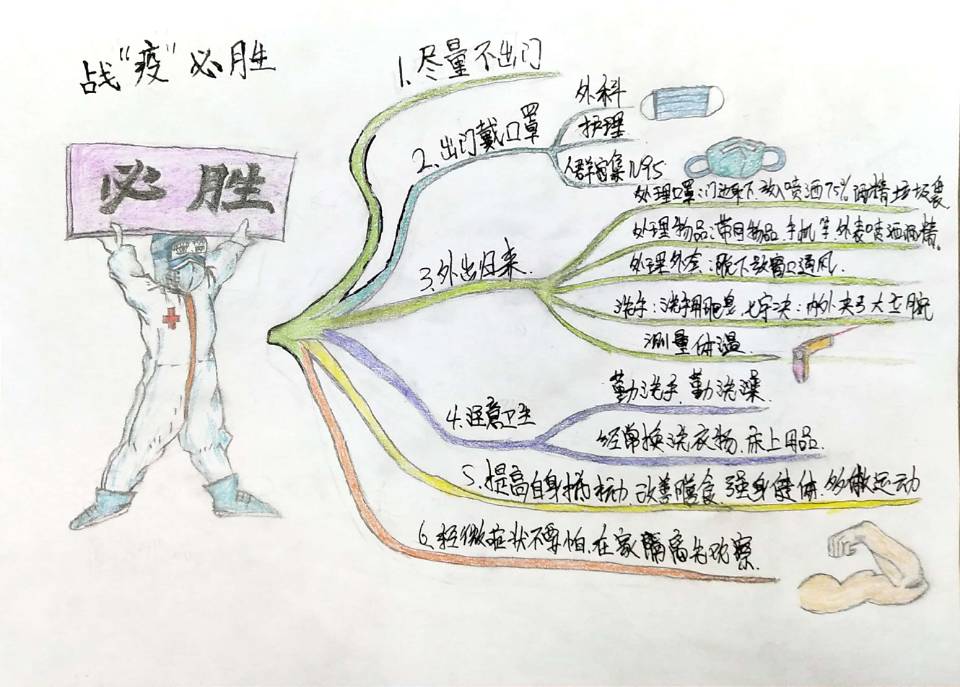 战“疫”必胜
必胜
1.尽量不出门
2.出门戴口罩
外科
护理
人群密集N95
3.外出归来.
处理口罩:门边取下放入喷洒75%酒精垃圾袋
处理物品:带回物品、手机等外表喷洒酒精.
处理外套:脱下放窗口通风.
洗手:洗手用肥皂,七字决:内外夹弓大立腕
测量体温
4.注意卫生
勤洗手,勤洗澡
经常换洗衣物、床上用品
5.提高自身抵抗力 改善膳食、强身健体、多做运动
6.轻微症状不要怕,在家隔离先观察